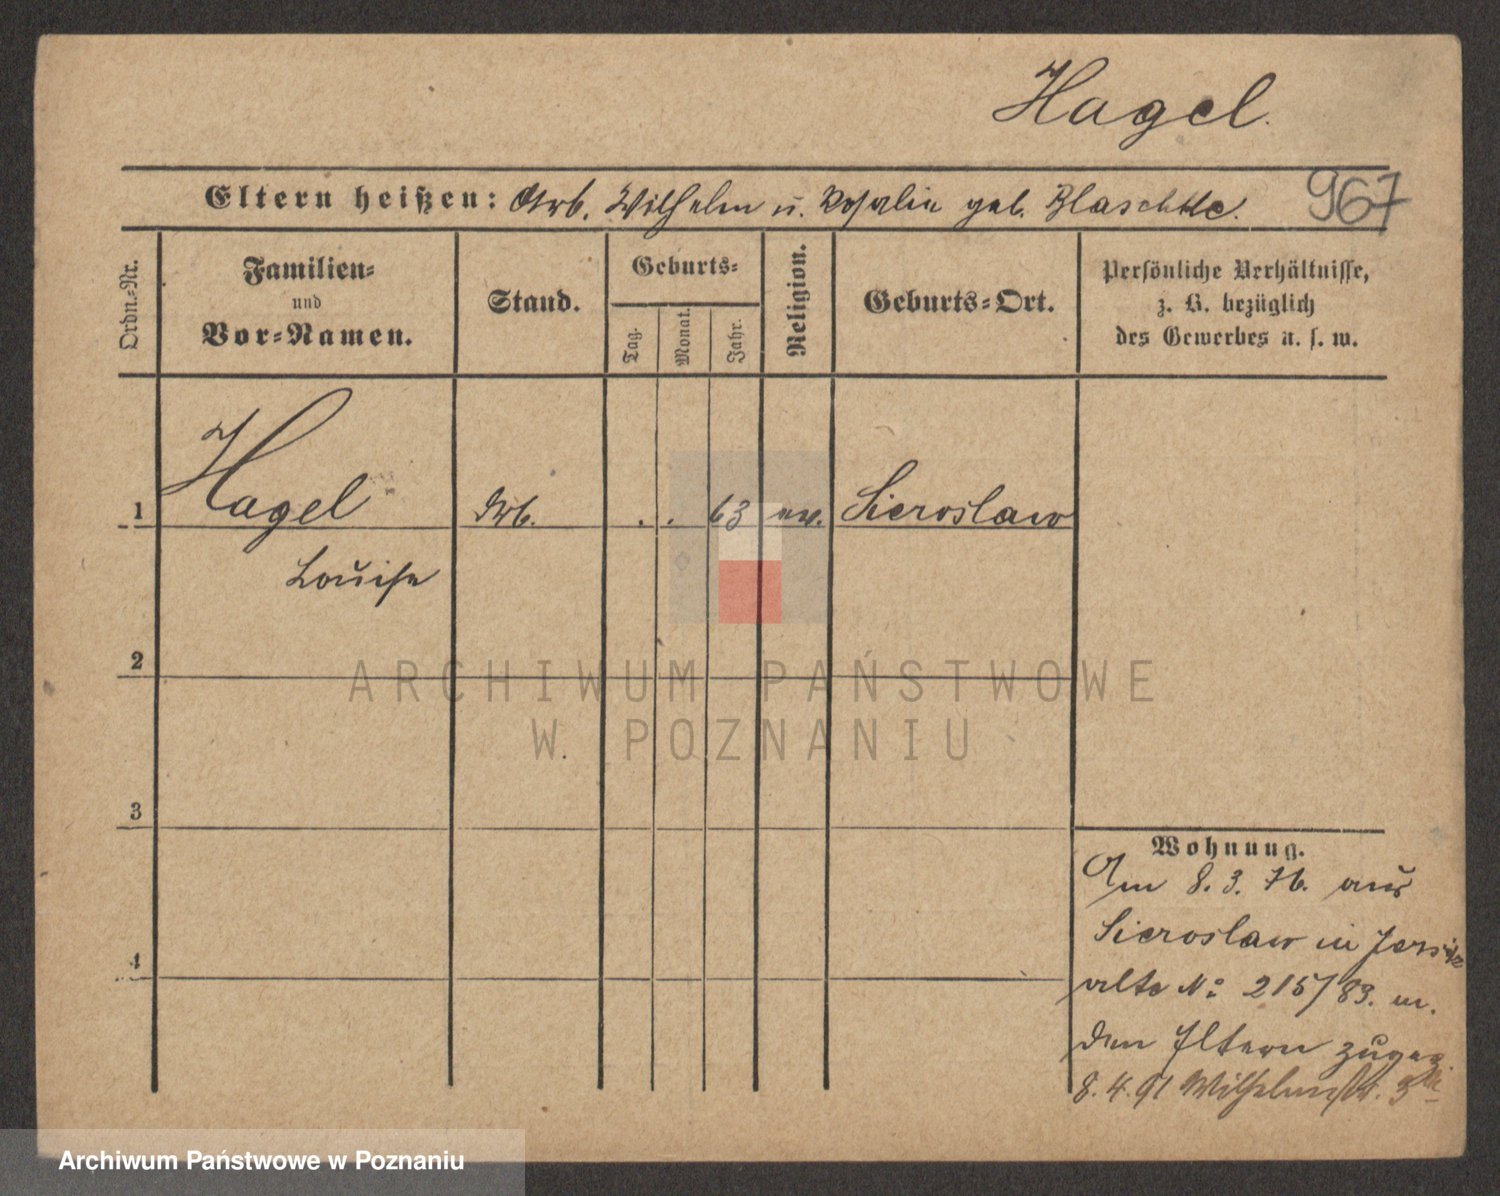 Hagel.
Eltern heißen: Arb. Wilhelm u. Rosalie geb. Blaschke. 967
Ordn.-Nr.
Familien-
und
Vor-Namen.
Stand.
Geburts-
Tag.
Monat.
Jahr.
Religion.
Geburts-Ort.
Persönliche Verhältnisse,
z. B. bezüglich
des Gewerbes u. s. w.
1 Hagel Arb. . . 63 ev. Sieroslaw
Louise
2
3
4
ARCHIWUM PAŃSTWOWE
W POZNANIU
Wohnung.
Am 8. 3. 76. aus
Sieroslaw in Jersitz
alte No 215/83. m.
den Eltern zugez.
8. 4. 91 Wilhelmstr. 3
Archiwum Państwowe w Poznaniu